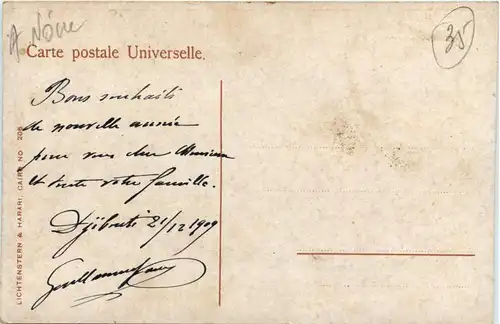 35
Carte postale Universelle.
Bons souhaits
de nouvelle année
pour vous cher Monsieur
et toute votre famille.
Djibouti 21/12 1909
LICHTENSTERN & HARARI, CAIRO NO 208